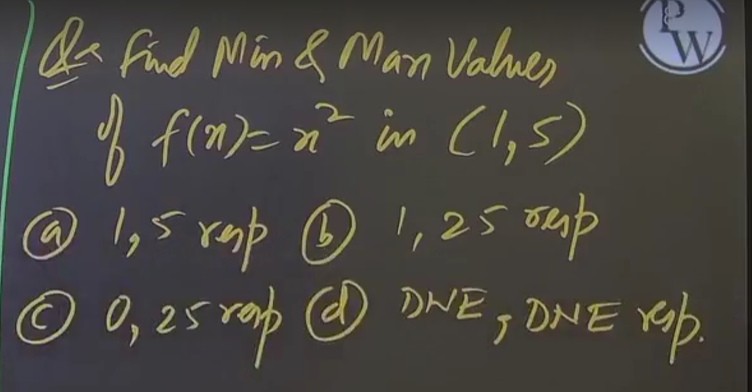 Qs Find Min & Max Values
of f(x)=x² in (1,5)
(a) 1,5 resp (b) 1,25 resp
(c) 0,25 resp (d) DNE, DNE resp.
PW